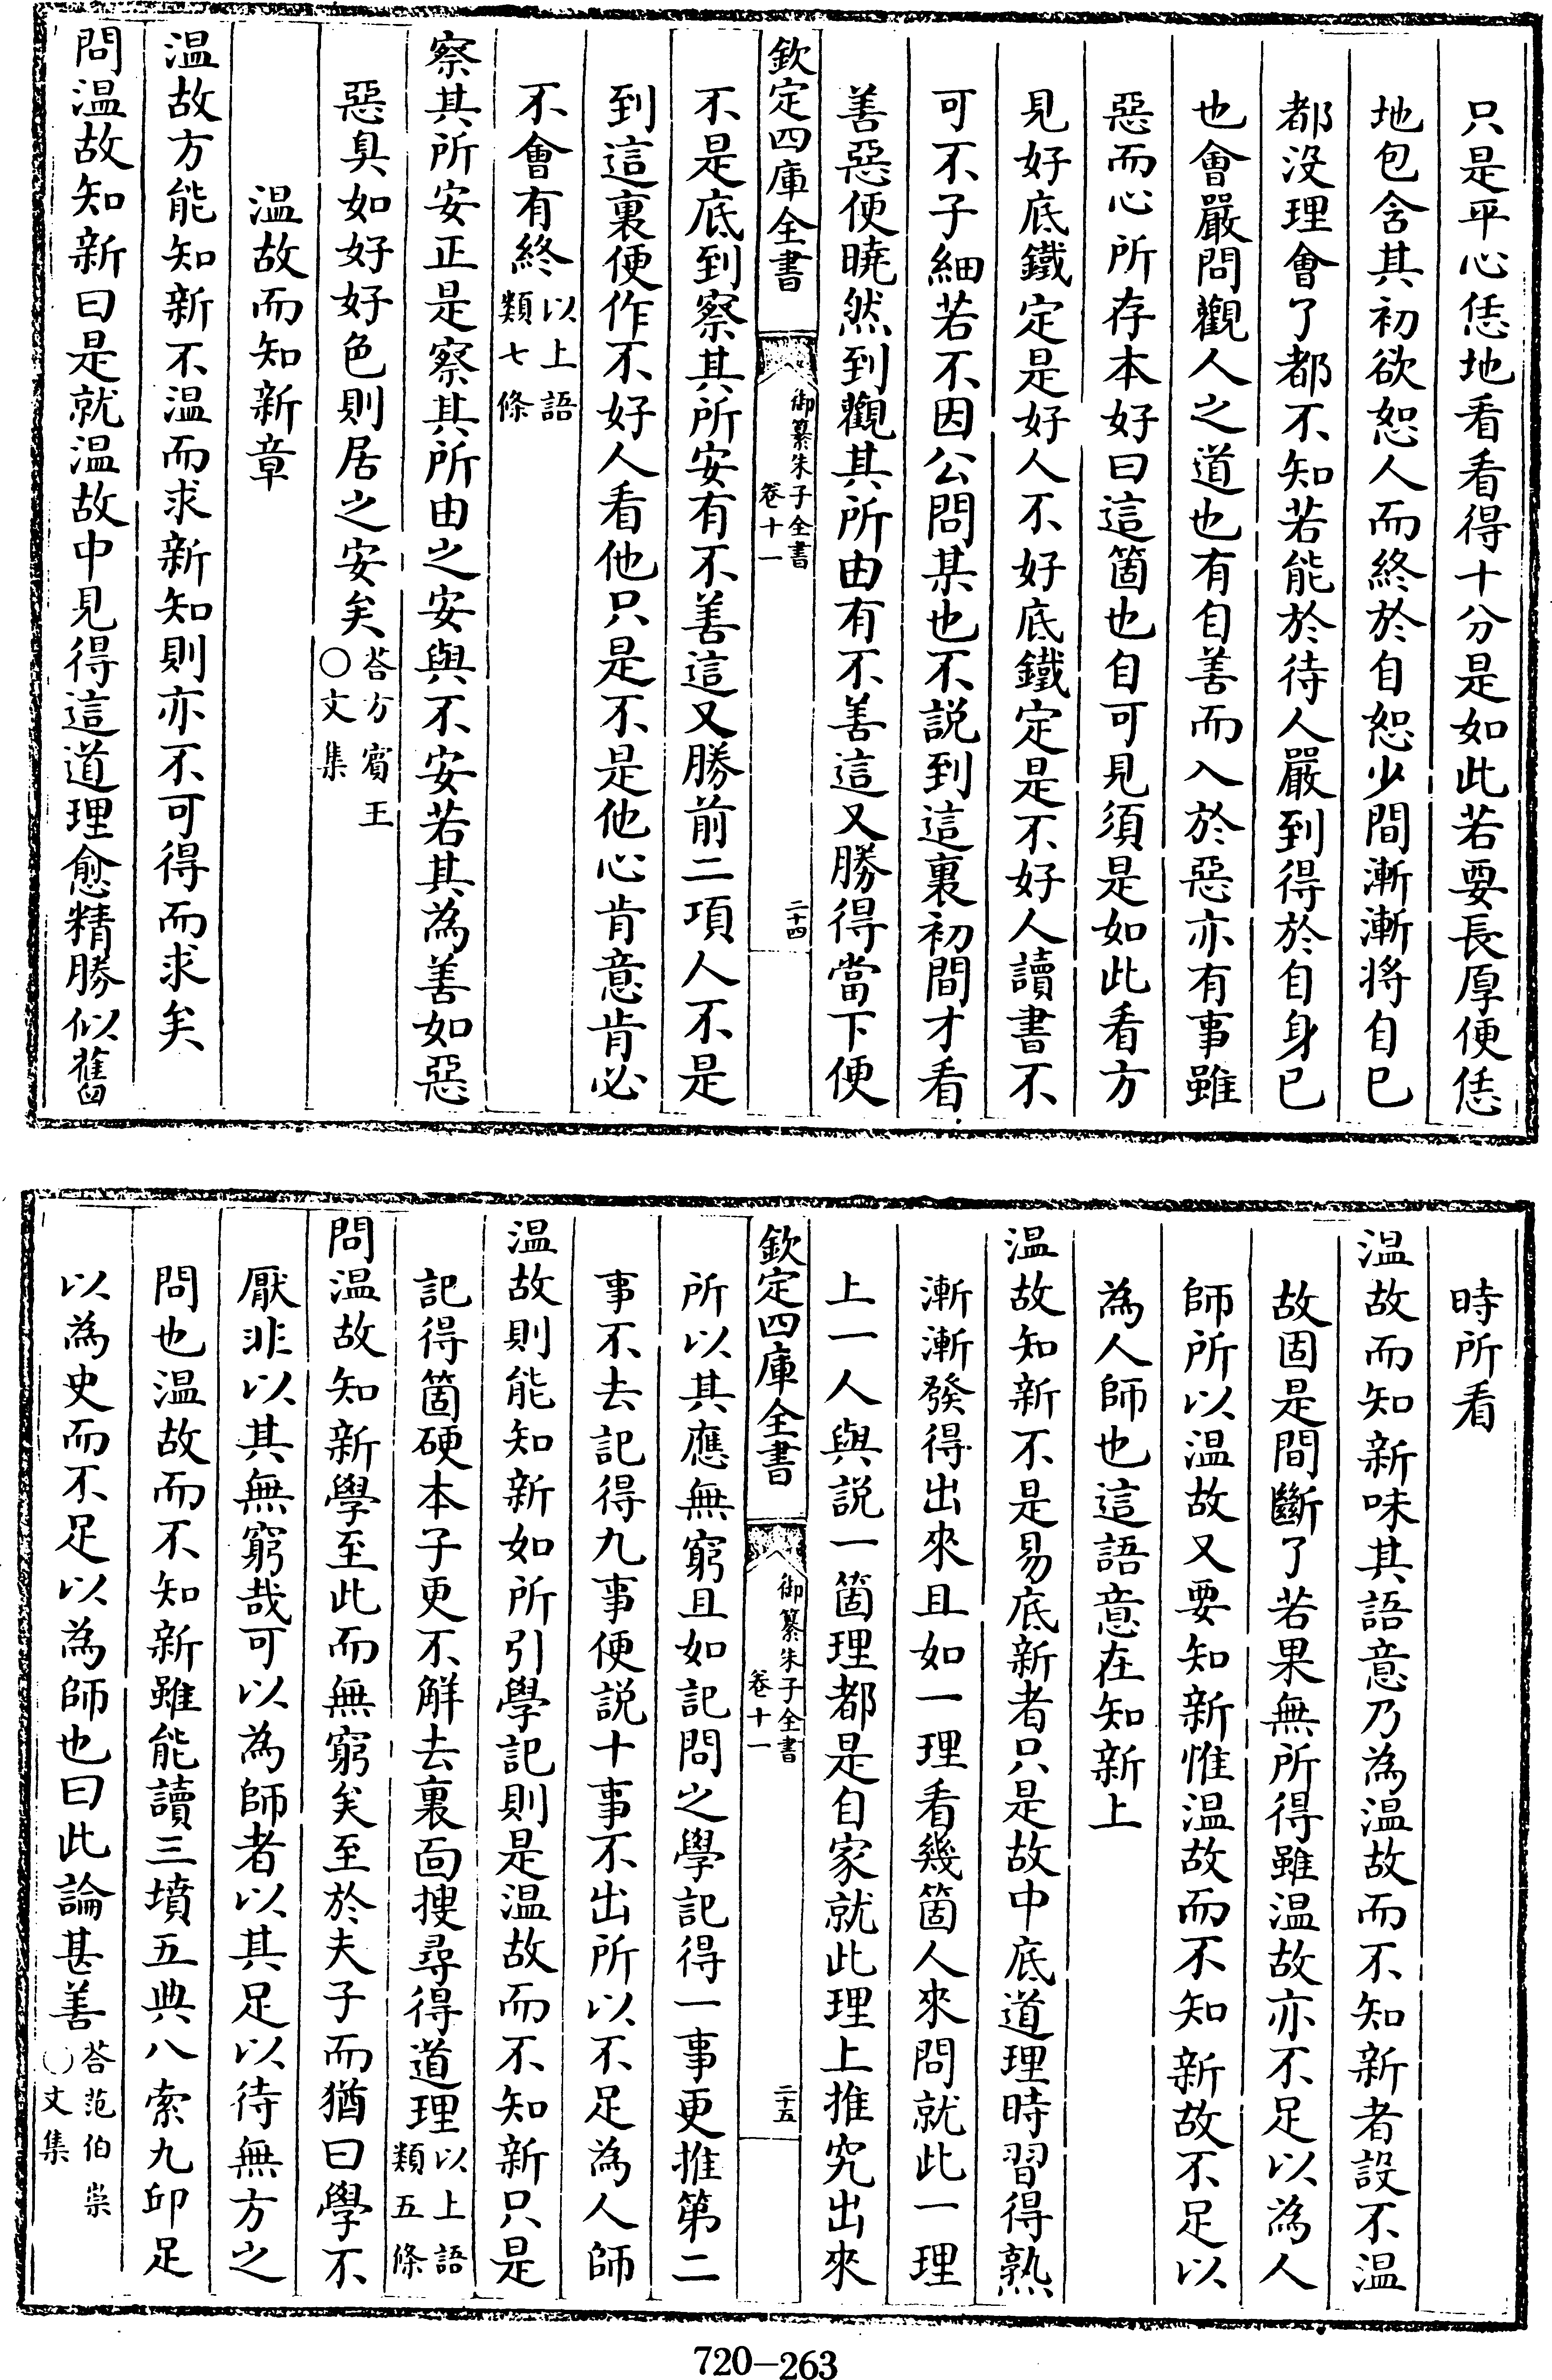 只是平心恁地看看得十分是如此若要長厚便恁
地包含其初欲恕人而終於自恕少間漸漸將自已
都没理會了都不知若能於待人嚴到得於自身已
也會嚴問觀人之道也有自善而入於惡亦有事雖
惡而心所存本好曰這箇也自可見須是如此看方
見好底鐵定是好人不好底鐵定是不好人讀書不
可不子細若不因公問某也不説到這裏初間才看
善惡便曉然到觀其所由有不善這又勝得當下便
欽定四庫全書
御纂朱子全書
卷十一
二十四
不是底到察其所安有不善這又勝前二項人不是
到這裏便作不好人看他只是不是他心肯意肯必
不會有終以上語
類七條
察其所安正是察其所由之安與不安若其為善如惡
惡臭如好好色則居之安矣荅方賔王
○文集
温故而知新章
温故方能知新不温而求新知則亦不可得而求矣
問温故知新曰是就温故中見得這道理愈精勝似舊
時所看
温故而知新味其語意乃為温故而不知新者設不温
故固是間斷了若果無所得雖温故亦不足以為人
師所以温故又要知新惟温故而不知新故不足以
為人師也這語意在知新上
温故知新不是易底新者只是故中底道理時習得熟
漸漸發得出來且如一理看幾箇人來問就此一理
上一人與説一箇理都是自家就此理上推究出來
欽定四庫全書
御纂朱子全書
卷十一
二十五
所以其應無窮且如記問之學記得一事更推第二
事不去記得九事便説十事不出所以不足為人師
温故則能知新如所引學記則是温故而不知新只是
記得箇硬本子更不解去裏面搜尋得道理以上語
類五條
問温故知新學至此而無窮矣至於夫子而猶曰學不
厭非以其無窮哉可以為師者以其足以待無方之
問也温故而不知新雖能讀三墳五典八索九邱足
以為史而不足以為師也曰此論甚善荅范伯崇
○文集
720-263